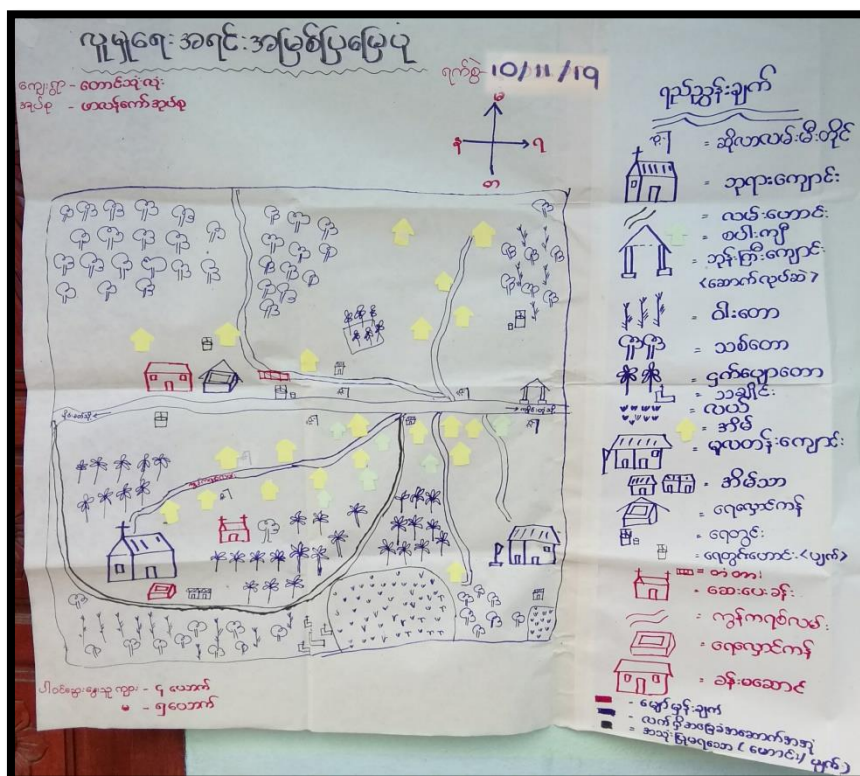 လူမှုရေးအရင်းအမြစ်ပြမြေပုံ
ရက်စွဲ- 10/11/19
ကျေးရွာ - တောင်သုံးလုံး
အုပ်စု - ဖာလန်ကော်အုပ်စု
မ
န
ရ
တ
ရည်ညွှန်းချက်
= ဆိုလာလမ်းမီးတိုင်
= ဘုရားကျောင်း
= လမ်းဟောင်း
= စပါးကျီ
= ဘုန်းကြီးကျောင်း
<ဆောက်လုပ်ဆဲ>
= ဝါးတော
= သစ်တော
= ငှက်ပျောတော
= သချိုင်း
= လယ်
= အိမ်
= မူလတန်းကျောင်း
= အိမ်သာ
= ရေလှောင်ကန်
= ရေတွင်း
= ရေတွင်းဟောင်း <ပျက်>
= တံတား
= ဆေးပေးခန်း
= ကွန်ကရစ်လမ်း
= ရေလှောင်ကန်
= ခန်းမဆောင်
- မျှော်မှန်းချက်
- လက်ရှိအခြေခံအဆောက်အအုံ
- အသုံးပြုမရသော (ဟောင်း/ပျက်)
ပါဝင်ဆွေးနွေးသူ ကျား - ၄ ယောက်
မ - ၅ ယောက်